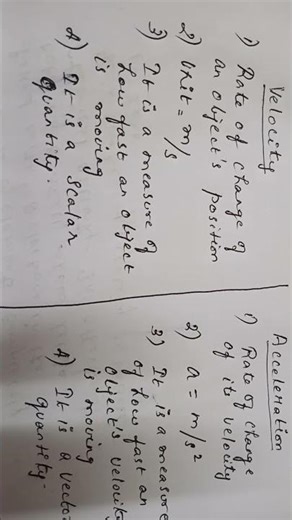 Velocity
1) Rate of change of
an object's position
2) Unit = m/s
3) It is a measure of
how fast an object
is moving
4) It is a scalar
quantity.
Acceleration
1) Rate of change
of its velocity
2) a = m/s²
3) It is a measure
of how fast an
object's velocity
is moving
4) It is a vector
quantity.